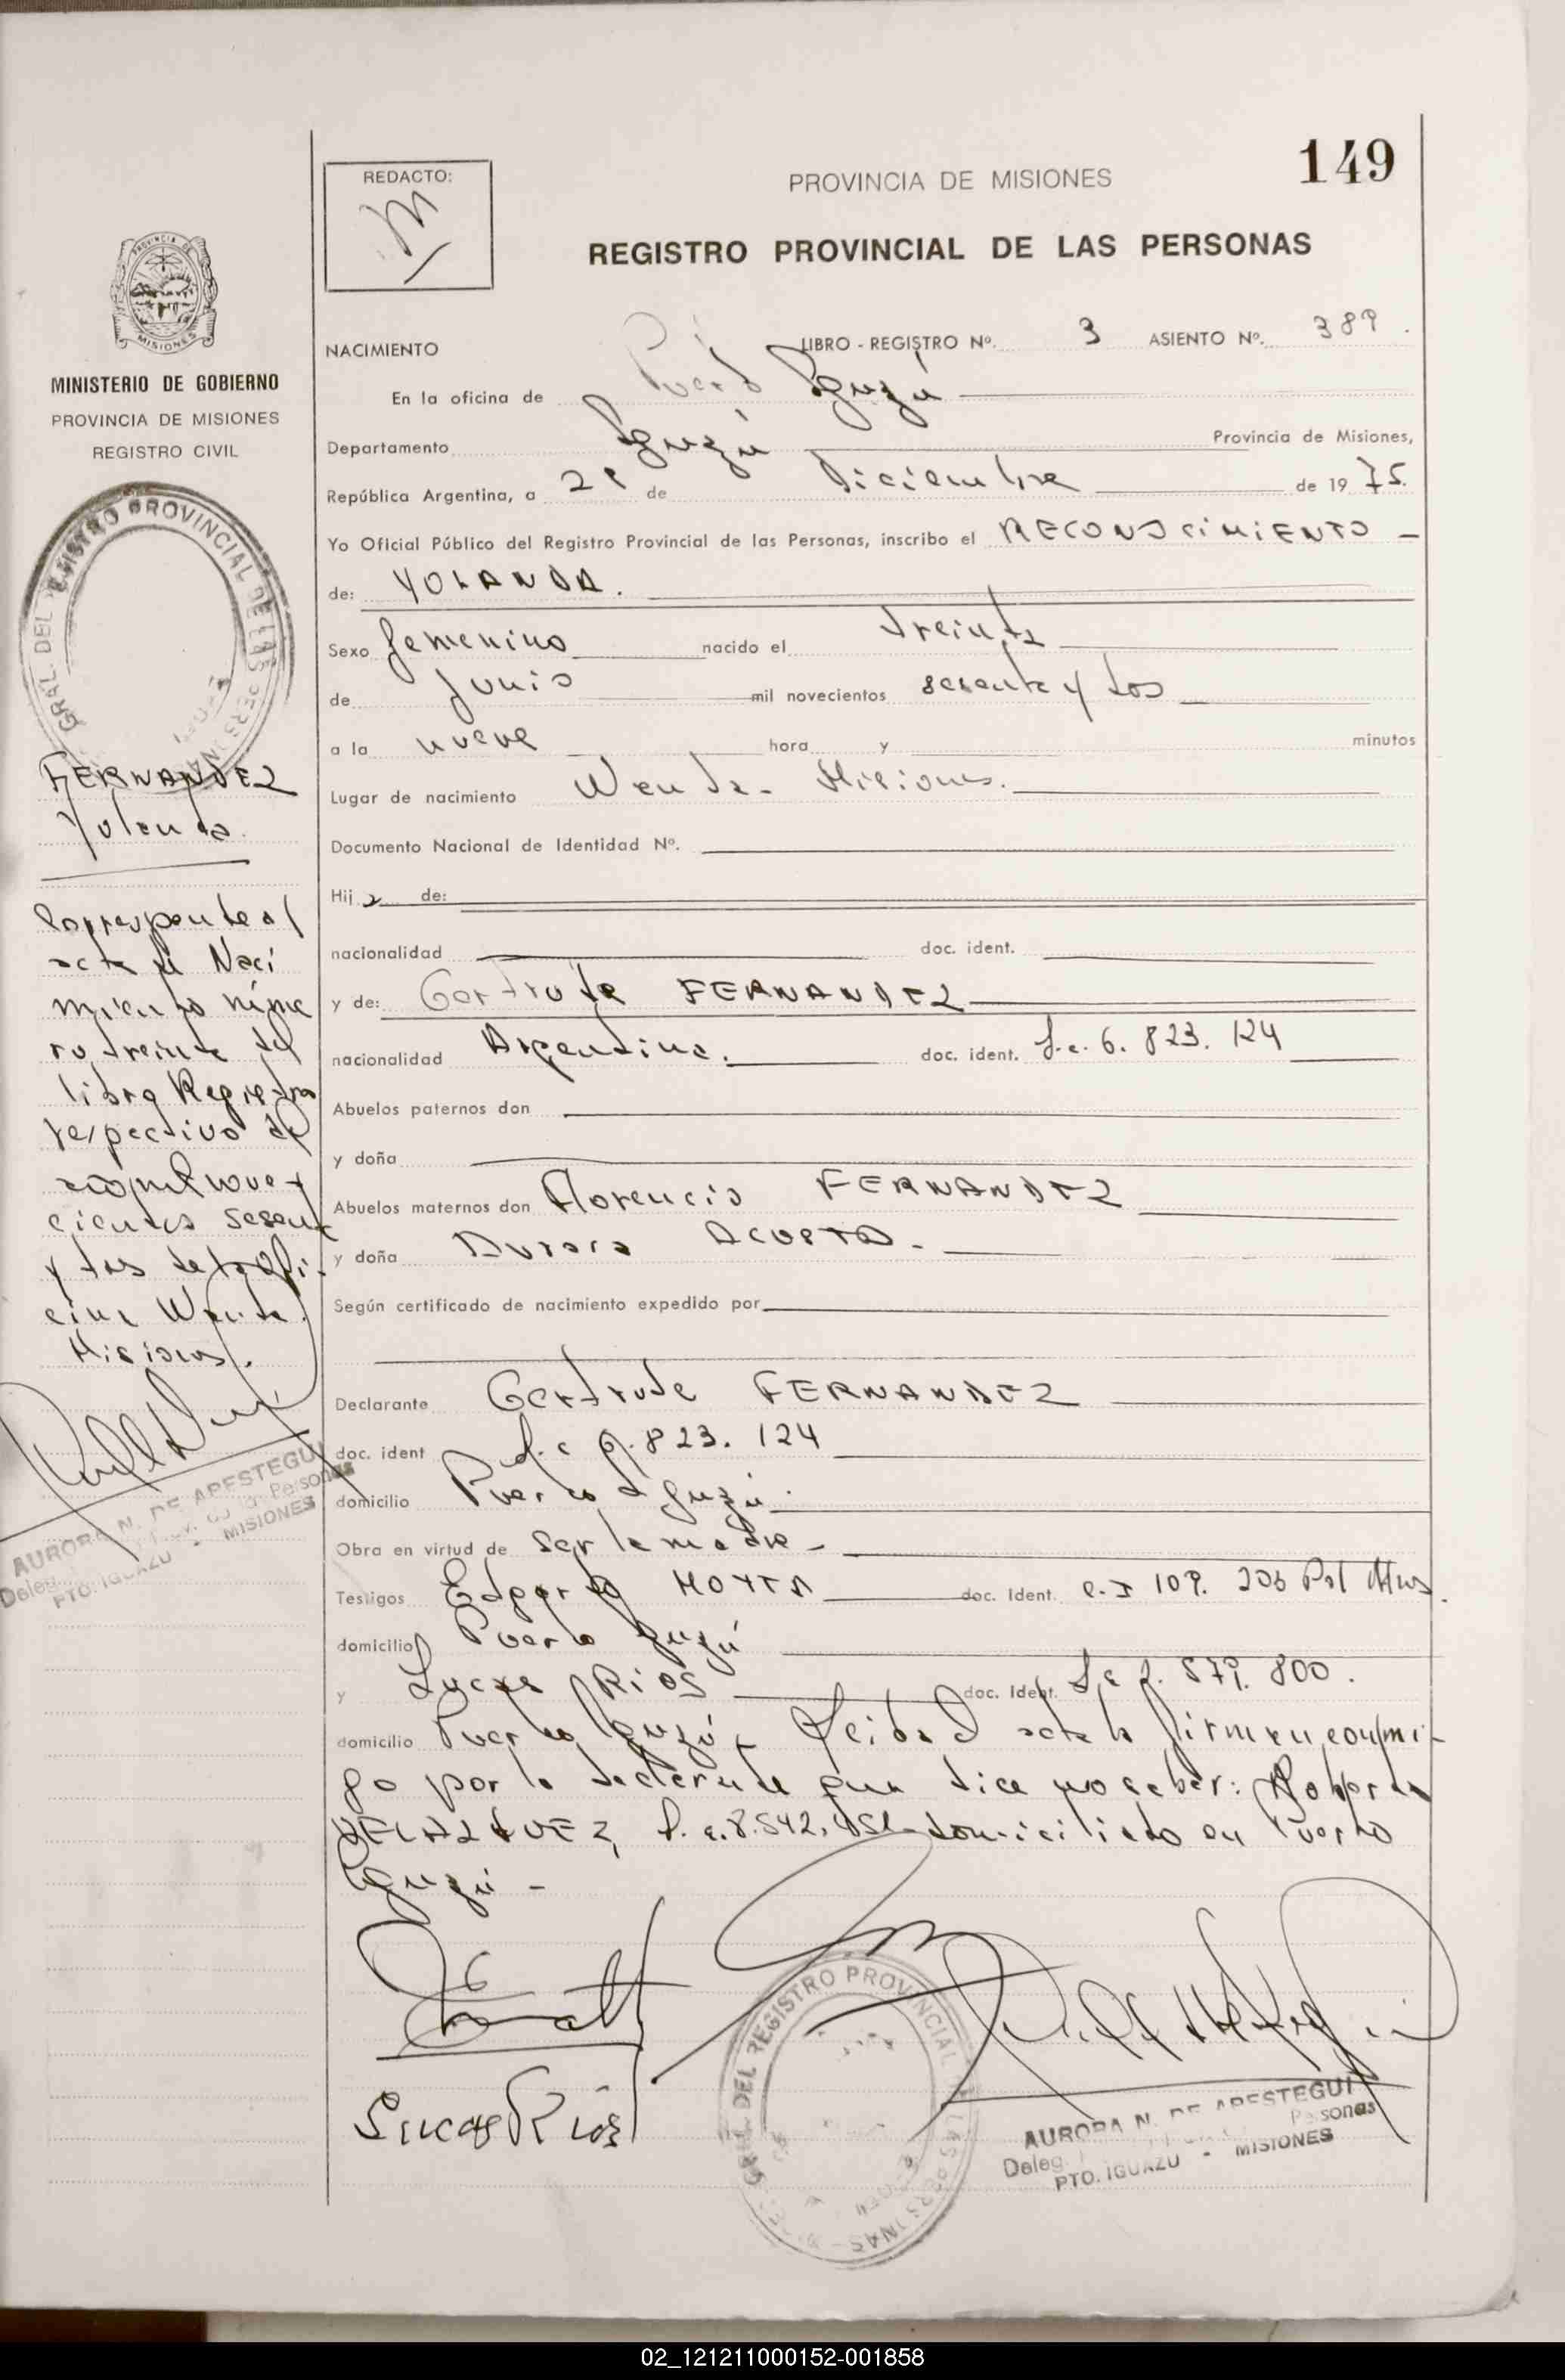 149
REDACTO:
PROVINCIA DE MISIONES
REGISTRO PROVINCIAL DE LAS PERSONAS
MINISTERIO DE GOBIERNO
PROVINCIA DE MISIONES
REGISTRO CIVIL
NACIMIENTO LIBRO - REGISTRO Nº. 3 ASIENTO Nº. 389.
En la oficina de Puerto Iguazú
Departamento Iguazú Provincia de Misiones,
República Argentina, a de Diciembre de 1975.
Yo Oficial Público del Registro Provincial de las Personas, inscribo el RECONOCIMIENTO -
de: YOLANDA.
Sexo femenino nacido el treinta
de Junio mil novecientos sesenta y dos
a la nueve hora y minutos
Lugar de nacimiento Wanda - Misiones.
Documento Nacional de Identidad Nº.
Hija de:
nacionalidad doc. ident.
y de: Gertrude FERNANDEZ
nacionalidad Argentina. doc. ident. L.c. 6.823.124
Abuelos paternos don
y doña
Abuelos maternos don Florencio FERNANDEZ
y doña Aurora ACOSTA.
Según certificado de nacimiento expedido por
Declarante Gertrude FERNANDEZ
doc. ident L.c 6.823.124
domicilio Puerto Iguazú.
Obra en virtud de ser la madre -
Testigos Edgardo doc. Ident.
domicilio Puerto Iguazú
y Lucas RIOS doc. Ident.
domicilio Puerto Iguazú - Leida el acta la firman conmi-
go por la declarante que dice no saber: Roberto
VELAZQUEZ, domiciliado en Puerto
Iguazú -
Lucas Rios
FERNANDEZ
Yolanda.
Corresponde al
acta de Naci
miento núme
ro treinta del
libro Registro
respectivo de
nove
cientos sesen
y dos de la ofi-
cina Wanda.
Misiones.
AURORA N. DE APESTEGUI
Deleg. Personas
PTO. IGUAZU - MISIONES
GRAL. DEL REGISTRO PROVINCIAL DE LAS PERSONAS
GRAL. DEL REGISTRO PROVINCIAL DE LAS PERSONAS
AURORA N. DE APESTEGUI
Deleg. Personas
PTO. IGUAZU - MISIONES
02_121211000152-001858